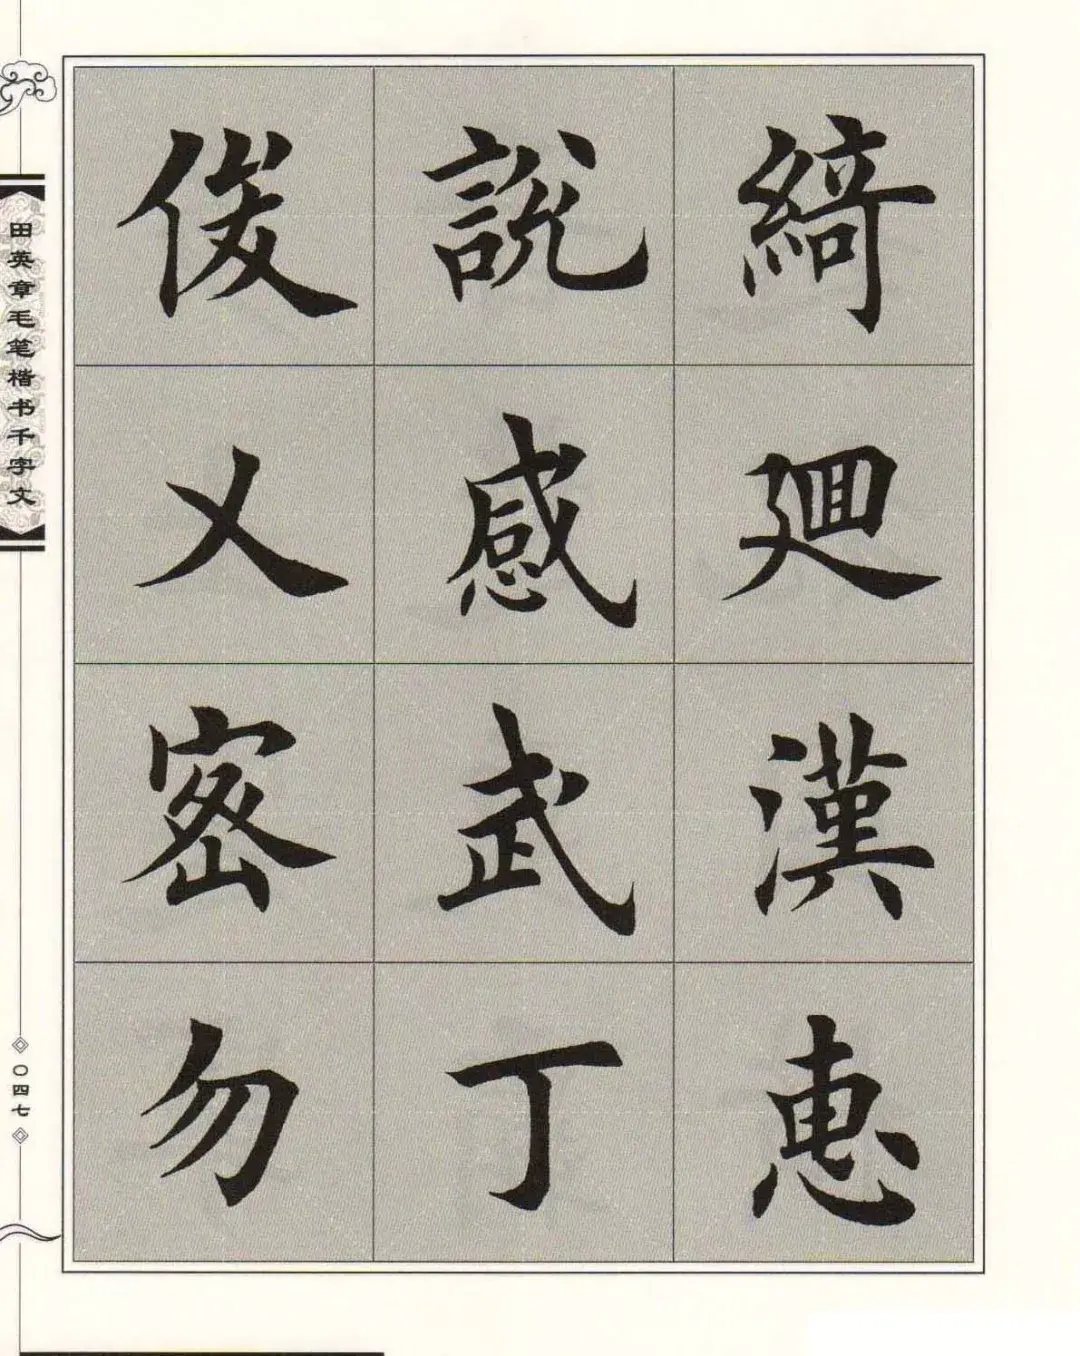 綺廻漢惠
說感武丁
俊乂密勿
田英章毛笔楷书千字文
〇四七